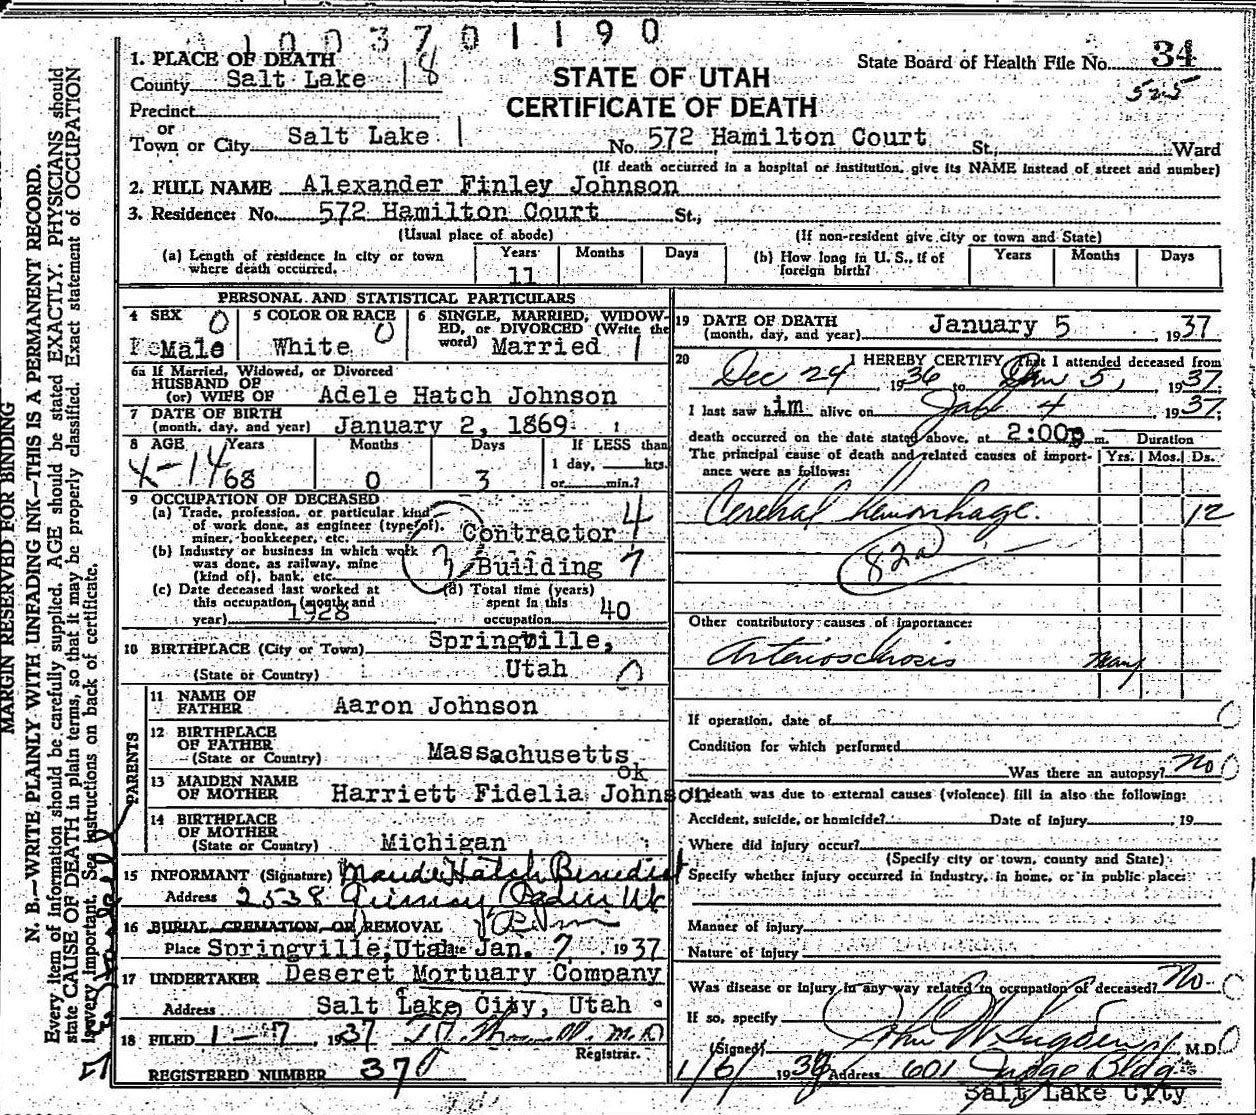 1003701190
1. PLACE OF DEATH
County Salt Lake 18
STATE OF UTAH
CERTIFICATE OF DEATH
State Board of Health File No. 34
525
Precinct
or
Town or City Salt Lake 1 No. 572 Hamilton Court St., Ward
(If death occurred in a hospital or institution, give its NAME instead of street and number)
2. FULL NAME Alexander Finley Johnson
3. Residence: No. 572 Hamilton Court St.,
(Usual place of abode) (If non-resident give city or town and State)
(a) Length of residence in city or town where death occurred. Years 11 Months Days
(b) How long in U. S., if of foreign birth? Years Months Days
PERSONAL AND STATISTICAL PARTICULARS
4 SEX 0 5 COLOR OR RACE 0 6 SINGLE, MARRIED, WIDOW-
ED, or DIVORCED (Write the
word) Married 1
Male White
6a If Married, Widowed, or Divorced
HUSBAND OF
(or) WIFE OF Adele Hatch Johnson
7 DATE OF BIRTH
(month, day, and year) January 2, 1869
8 AGE Years Months Days If LESS than
1 day, hrs.
or min.?
X-14 68 0 3
9 OCCUPATION OF DECEASED
(a) Trade, profession, or particular kind
of work done, as engineer (type of),
miner, bookkeeper, etc. Contractor 4
(b) Industry or business in which work
was done, as railway, mine
(kind of), bank, etc. Building 7
3
(c) Date deceased last worked at
this occupation (month and
year) 1928
(d) Total time (years)
spent in this
occupation 40
10 BIRTHPLACE (City or Town) Springville,
(State or Country) Utah 0
PARENTS
11 NAME OF
FATHER Aaron Johnson
12 BIRTHPLACE
OF FATHER
(State or Country) Massachusetts
ok
13 MAIDEN NAME
OF MOTHER Harriett Fidelia Johnson
14 BIRTHPLACE
OF MOTHER
(State or Country) Michigan
15 INFORMANT (Signature) Maude Hatch Benedict
Address 2538 Quincy Ogden Ut
16 BURIAL, CREMATION, OR REMOVAL
Place Springville, Utah Date Jan. 7 1937
17 UNDERTAKER Deseret Mortuary Company
Address Salt Lake City, Utah.
18 FILED 1-7 1937 M.D
Registrar.
REGISTERED NUMBER 37
19 DATE OF DEATH
(month, day, and year) January 5, 1937
20 I HEREBY CERTIFY That I attended deceased from
Dec 24, 1936 to Jan 5, 1937
I last saw him alive on Jan 4 1937;
death occurred on the date stated above, at 2:00p m. Duration
The principal cause of death and related causes of import-
ance were as follows: Yrs. Mos. Ds.
Cerebral hemorrhage. 12
82a
Other contributory causes of importance:
Arteriosclerosis many
If operation, date of
Condition for which performed
Was there an autopsy? No
If death was due to external causes (violence) fill in also the following:
Accident, suicide, or homicide? Date of injury , 19
Where did injury occur?
(Specify city or town, county and State)
Specify whether injury occurred in industry, in home, or in public place:
Manner of injury
Nature of injury
Was disease or injury in any way related to occupation of deceased? No.
If so, specify
(Signed) John W Sugden M.D.
1/6/ 1937 Address 601 Judge Bldg
Salt Lake City
MARGIN RESERVED FOR BINDING
N. B.—WRITE PLAINLY WITH UNFADING INK—THIS IS A PERMANENT RECORD.
Every item of information should be carefully supplied. AGE should be stated EXACTLY. PHYSICIANS should
state CAUSE OF DEATH in plain terms, so that it may be properly classified. Exact statement of OCCUPATION
is very important. See instructions on back of certificate.